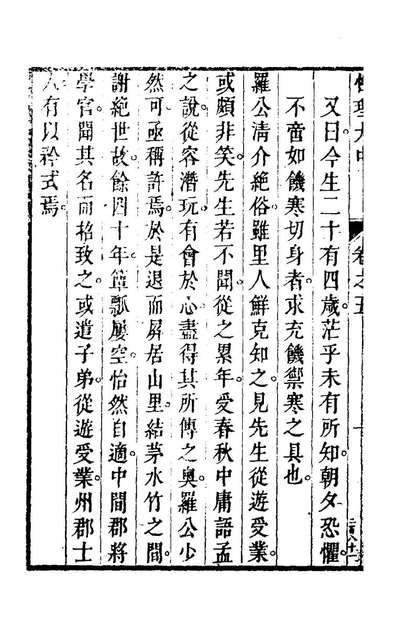 性理大中
卷之五
又曰今生二十有四歲茫乎未有所知朝夕恐懼
不啻如饑寒切身者求充饑禦寒之具也
羅公清介絶俗雖里人鮮克知之見先生從遊受業
或頗非笑先生若不聞從之累年受春秋中庸語孟
之說從容潛玩有會於心盡得其所傳之奥羅公少
然可亟稱許焉於是退而屏居山里結茅水竹之間
謝絶世故餘四十年簞瓢屢空怡然自適中間郡將
學官聞其名而招致之或遣子弟從遊受業州郡士
人有以矜式焉